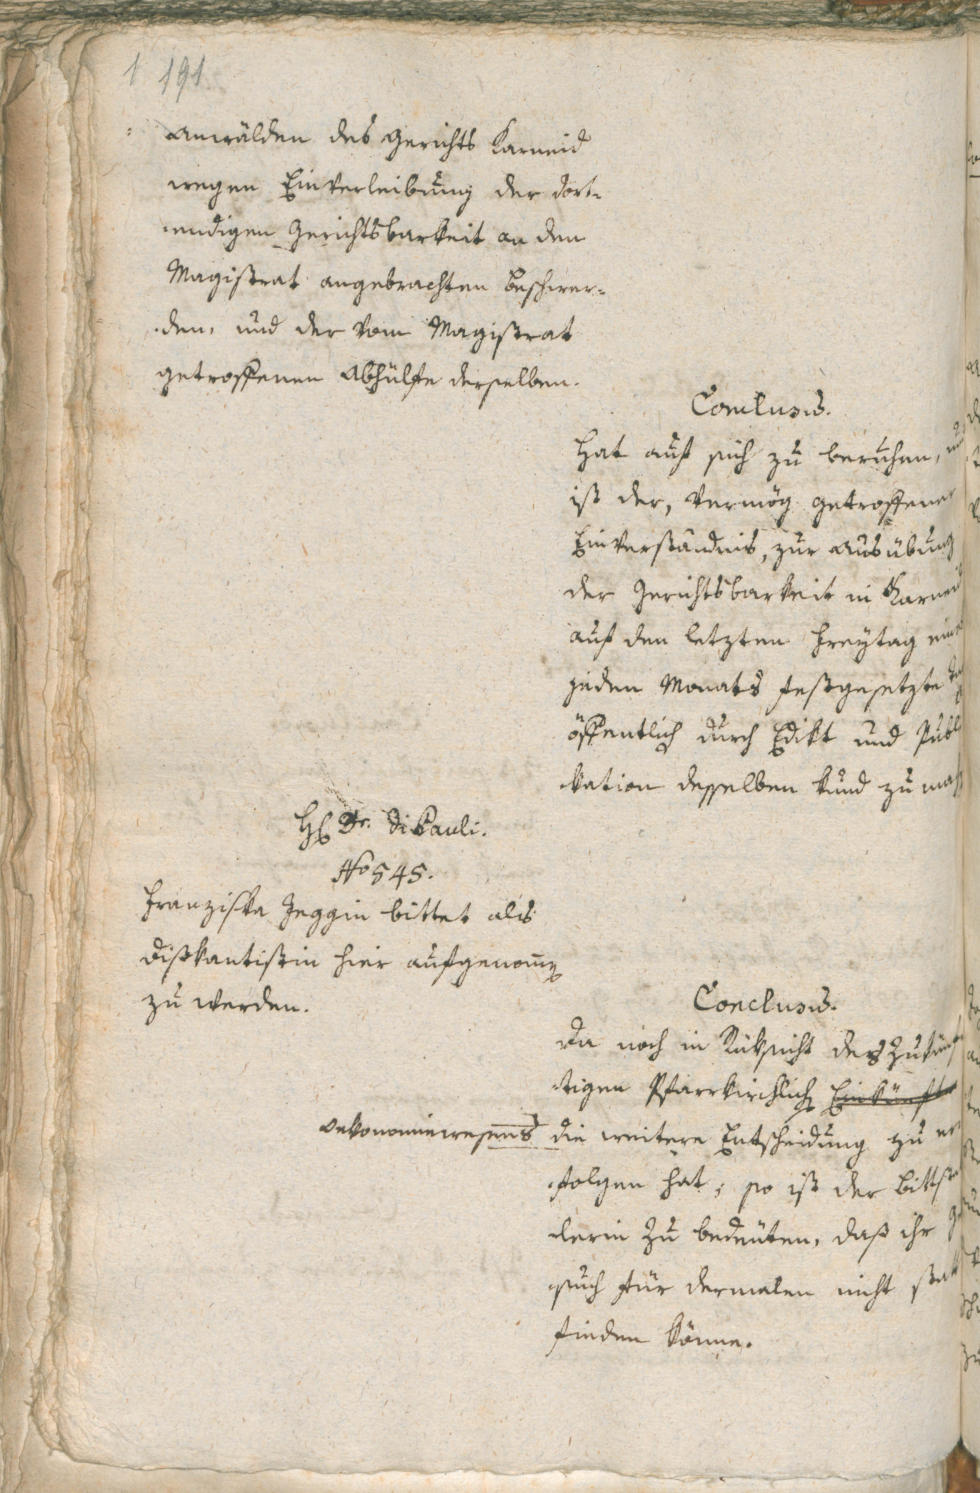 1 191
Anwälden des Gerichts Karneid
wegen Einverleibung der dort¬
endigen Gerichtsbarkeit an den
Magistrat angebrachten Beschwer¬
den, und der vom Magistrat
getroffenen Abhülfe derselben.
Conclusus.
Hat auf sich zu beruhen, und
ist der, vermög getroffener
Einverständnis, zur Ausübung
der Gerichtsbarkeit in Karneid
auf den letzten Freÿtag eines
jeden Monats festgesetzte
öffentlich durch Edikt und Publi
kation desselben kund zu mach
H Dr. Di Pauli.
No 545.
Franziska Jeggin bittet als
Diskantistin hier aufgenom̄en
zu werden.
Conclusus.
Da noch in Rüksicht des zukünf
tigen Pfarrkirchlichen Einkünfte
Oekonomiewesens die weitere Entscheidung zu er
folgen hat; so ist der Bittstel
lerin zu bedeuten, daß ihr Ge
such für dermalen nicht statt
finden könne.